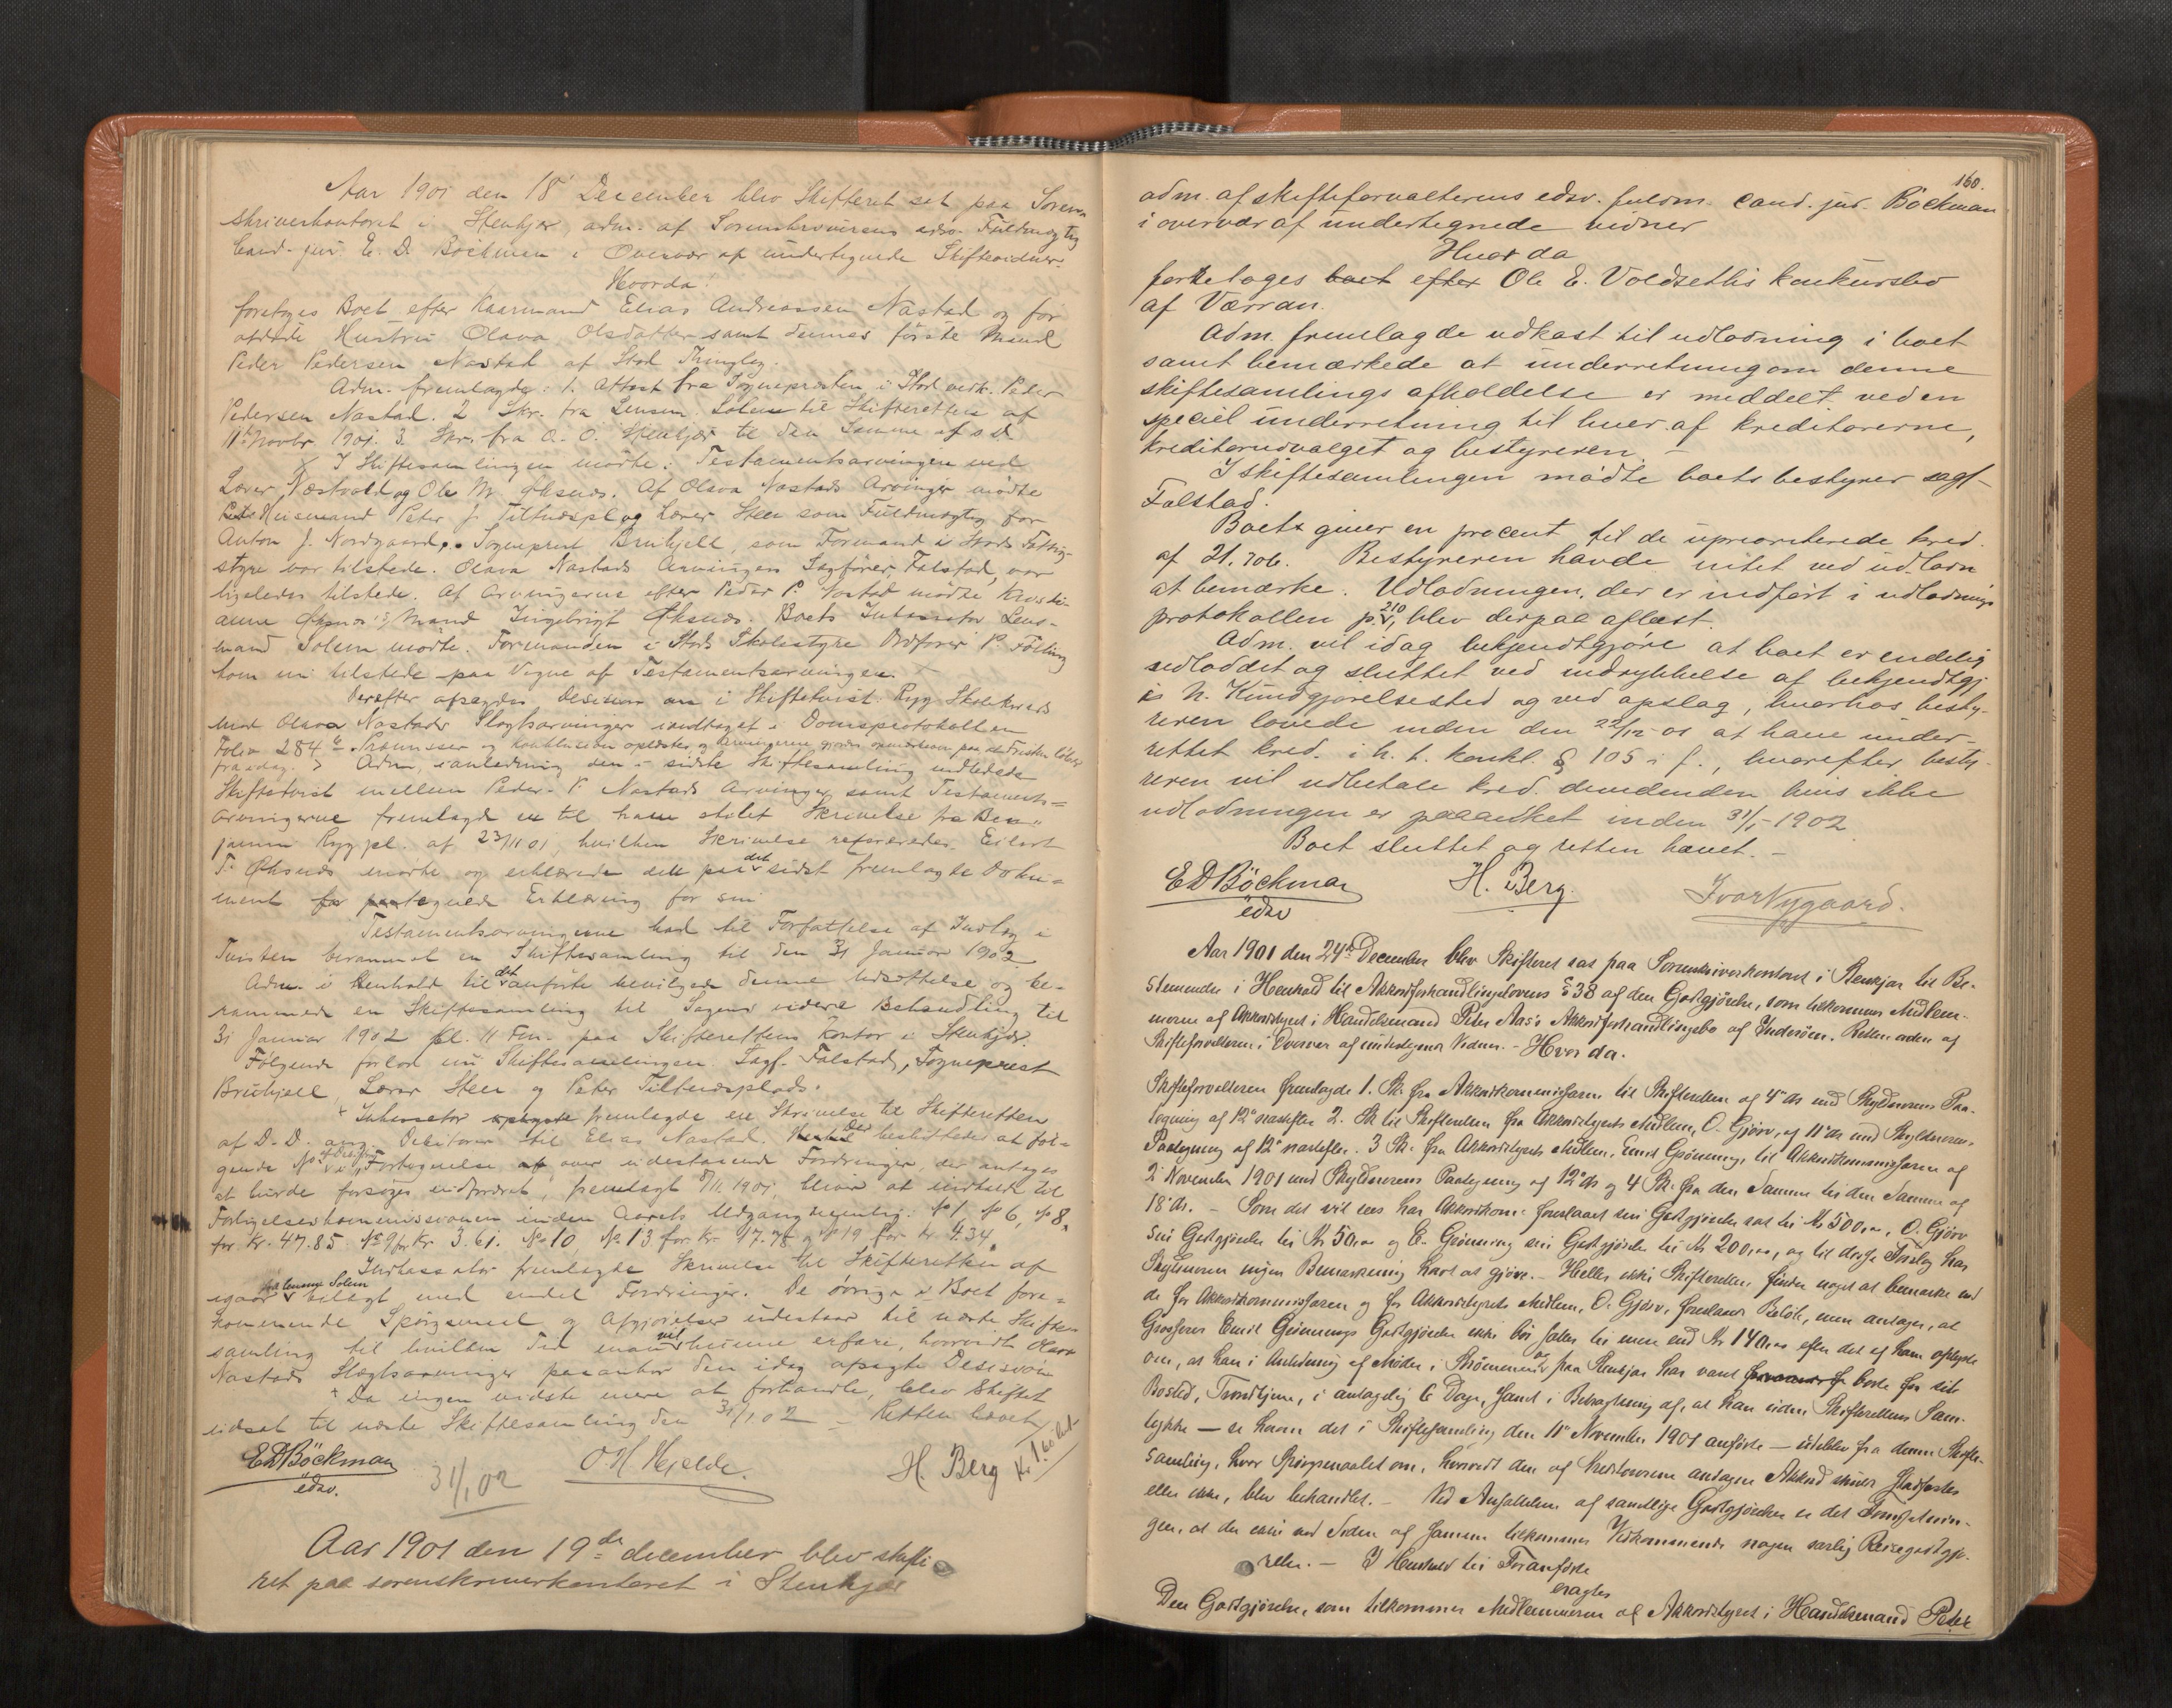 Aar 1901 den 18' December blev Skifteret sat paa Soren-
skriverkontoret i Stenkjær, adm. af Sorenskriverens edsv. Fuldmægtig
Cand. jur. E. D. Böckman i Overvær af undertegnede Skiftevidner.
Hvorda:
foretoges Boet efter Kaarmand Elias Andreassen Nastad og før
afdøde Hustru Olava Olsdatter samt dennes første Mand
Peder Pedersen Nastad af Stod Thinglag.
Adm. fremlagde: 1. Attest fra Sognepresten i Stod vedk. Peder
Pedersen Nastad. 2 Skr. fra Lensm. Solem til Skifteretten af
11te Novbr. 1901. 3. Skr. fra O. O. Stenkjær til den Samme af s D
I Skiftesamlingen mødte: Testamentsarvingen ved
Lærer Næstvold og Ole M. Øksnes. Af Olava Nastads Arvinger mødte
Husmand Peter J. Tiltnespl og Lærer Steen som Fuldmægtig for
Anton J. Nordgaard. Sogneprest Bruhjell, som Formand i Stods Fattig-
styre var tilstede. Olava Nastads Arvingers Sagfører, Falstad, var
ligeledes tilstede. Af Arvingerne efter Peder P. Nastad mødte Kristi-
anne Øksnes v/Mand Ingebrigt Øksnes. Boets Inkassator Lens-
mand Solem mødte. Formanden i Stods Skolestyre Ordfører P. Følling
kom nu tilstede paa Vegne af Testamentsarvingen.
Derefter afsagdes Desision i Skiftetvist: Rygg Skolekreds
mod Olava Nastads Slægtsarvinger indtaget i Domsprotokollen
Folio 284
fra idag. Adm. i anledning den i sidste Skiftesamling indledede
Skiftetvist mellem Peder P. Nastads Arvinger samt Testaments-
arvingerne fremlagde en til ham stilet Skrivelse fra Ben-
jamin Rygg pl. af 23/11 01, hvilken Skrivelse refereredes. Eilert
T. Øksnes mødte og erklærede det paa det sidst fremlagte Doku-
ment paategnede Erklæring for sin
Testamentsarvingerne bad til Forfattelse af Indlæg i
Tvisten berammet en Skiftesamling til den 31 Januar 1902
Adm. i Henhold til det anførte bevilgede denne Udsættelse og be-
rammede en Skiftesamling til Sagens videre Behandling til
31 Januar 1902 Kl. 11 Fm. paa Skifterettens Kontor i Stenkjær.
Følgende forlod nu Skiftesamlingen: Sagf. Falstad, Sogneprest
Bruhjell, Lærer Steen og Peter Tiltnesplads.
Inkassator fremlagde en Skrivelse til Skifteretten
af D. D. ang. Debitorer til Elias Nastad. Det besluttedes at føl-
gende No i Fortegnelse over udestaaende Fordringer, der antages
at burde forsøges inddrevet, fremlagt 8/11 1901, bliver at indkalde til
Forligelseskommissionen inden Aarets Udgang nemlig: No 1, No 6, No 8,
for Kr. 47.85 No 9 for Kr 3.61. No 10, No 13 for Kr. 17.78 og No 19 for Kr 4.34.
Inkassator fremlagde Skrivelse til Skifteretten af
igaar fra samme Solem bilagt med endel Fordringer. De øvrige i Boet fore-
kommende Spørgsmaal og Afgjørelser udestaar til næste Skifte-
samling til hvilken Tid man vil kunne erfare, hvorvidt Olava
Nastads Slægtsarvinger paaanker den idag afsagte Desision
Da ingen vidste mere at forhandle, blev Skiftet
udsat til næste Skiftesamling den 31/1 02 – Retten hævet
EDBöckman
edsv.
31/1 02
O. H. Hjelde.
H. Berg
Kr 1.60
Aar 1901 den 19de december blev skifte
ret paa sorenskriverkontoret i Stenkjær
160.
adm. af skifteforvalterens edsv. fuldm. cand. jur. Böckman
i overvær af undertegnede vidner
Hvor da
foretoges boet efter Ole E. Voldsethis konkursbo
af Værran.
Adm. fremlagde udkast til udlodning i boet
samt bemærkede at underretning om denne
skiftesamlings afholdelse er meddelt ved en
speciel underretning til hver af kreditorerne,
kreditorudvalget og bestyreren. –
I skiftesamlingen mødte boets bestyrer sagf-
Falstad.
Boet giver en procent til de uprioriterede kred.
af 21.706. Bestyreren havde intet ved udlodn
at bemærke. Udlodningen, der er indført i udlodnings
protokollen p. 210, blev derpaa aflæst.
Adm. vil idag bekjendtgjøre at boet er endelig
udloddet og sluttet ved indrykkelse af bekjendtgj
i N. Kundgjørelsestid og ved opslag, hvorhos besty-
reren lovede inden den 22/12 01 at have under-
rettet kred. i h. t. konkl. § 105 i f., hvorefter besty-
reren vil udbetale kred. dividenden hvis ikke
udlodningen er paaanket inden 31/1 1902
Boet sluttet og retten hævet. –
EDBöckman
edsv
H. Berg.
Ivar Nygaard.
Aar 1901 den 24de December blev Skifteret sat paa Sorenskriverkontoret i Stenkjær til Be-
stemmelse i Henhold til Akkordforhandlingslovens § 38 af den Godtgjørelse, som tilkommer Medlem-
merne af Akkordstyret i Handelsmand Peter Aas's Akkordforhandlingsbo af Inderøen. Retten adm af
Skifteforvalteren i Overvær af undertegnede Vidner. – Hvor da.
Skifteforvalteren fremlagde 1. Sk. fra Akkordkommissæren til Skifteretten af 4de ds med Skyldnerens Paa-
tegning af 12te næstefter 2. Sk. til Skifteretten fra Akkordstyrets Medlem, O. Gjørv, af 11te ds med Skyldnerens
Paategning af 12te næstefter. 3 Sk. fra Akkordstyrets Medlem, Emil Grønning, til Akkordkommissæren af
2 November 1901 med Skyldnerens Paategning af 12te ds og 4 Sk. fra den Samme til den Samme af
18de ds. – Som det vil sees har Akkordkom. foreslaaet sin Godtgjørelse sat til Kr 500,00, O. Gjørv
sin Godtgjørelse til Kr 50,00 og E. Grønning sin Godtgjørelse til Kr 200,00, og til disse Forslag har
Skyldneren ingen Bemærkning havt at gjøre. – Heller ikke Skifteretten finder noget at bemærke ved
de for Akkordkommissæren og for Akkordstyrets Medlem, O. Gjørv, foreslaaede Beløb, men antager, at
Grosserer Emil Grønnings Godtgjørelse ikke bør sættes til mere end Kr 140,00 efter det af ham oplyste
om, at han i Anledning af Møder i Strømmen og paa Stenkjær har været borte fra sit
Bosted, Trondhjem, i antagelig 6 Dage, samt i Betragtning af, at han uden Skifterettens Sam-
tykke – se herom det i Skiftesamling den 11te November 1901 anførte – udeblev fra denne Skifte-
samling, hvor Spørgsmaalet om, hvorvidt den af Kreditorerne antagne Akkord skulde stadfæstes
eller ikke, blev behandlet. – Ved Ansættelsen af samtlige Godtgjørelser er det Forudsætnin-
gen, at der ei ved Siden af samme tilkommer Vedkommende nogen særlig Reisegodtgjø-
relse. – I Henhold til Foranførte
eragtes
Den Godtgjørelse, som tilkommer Medlemmerne af Akkordstyret i Handelsmand Peter